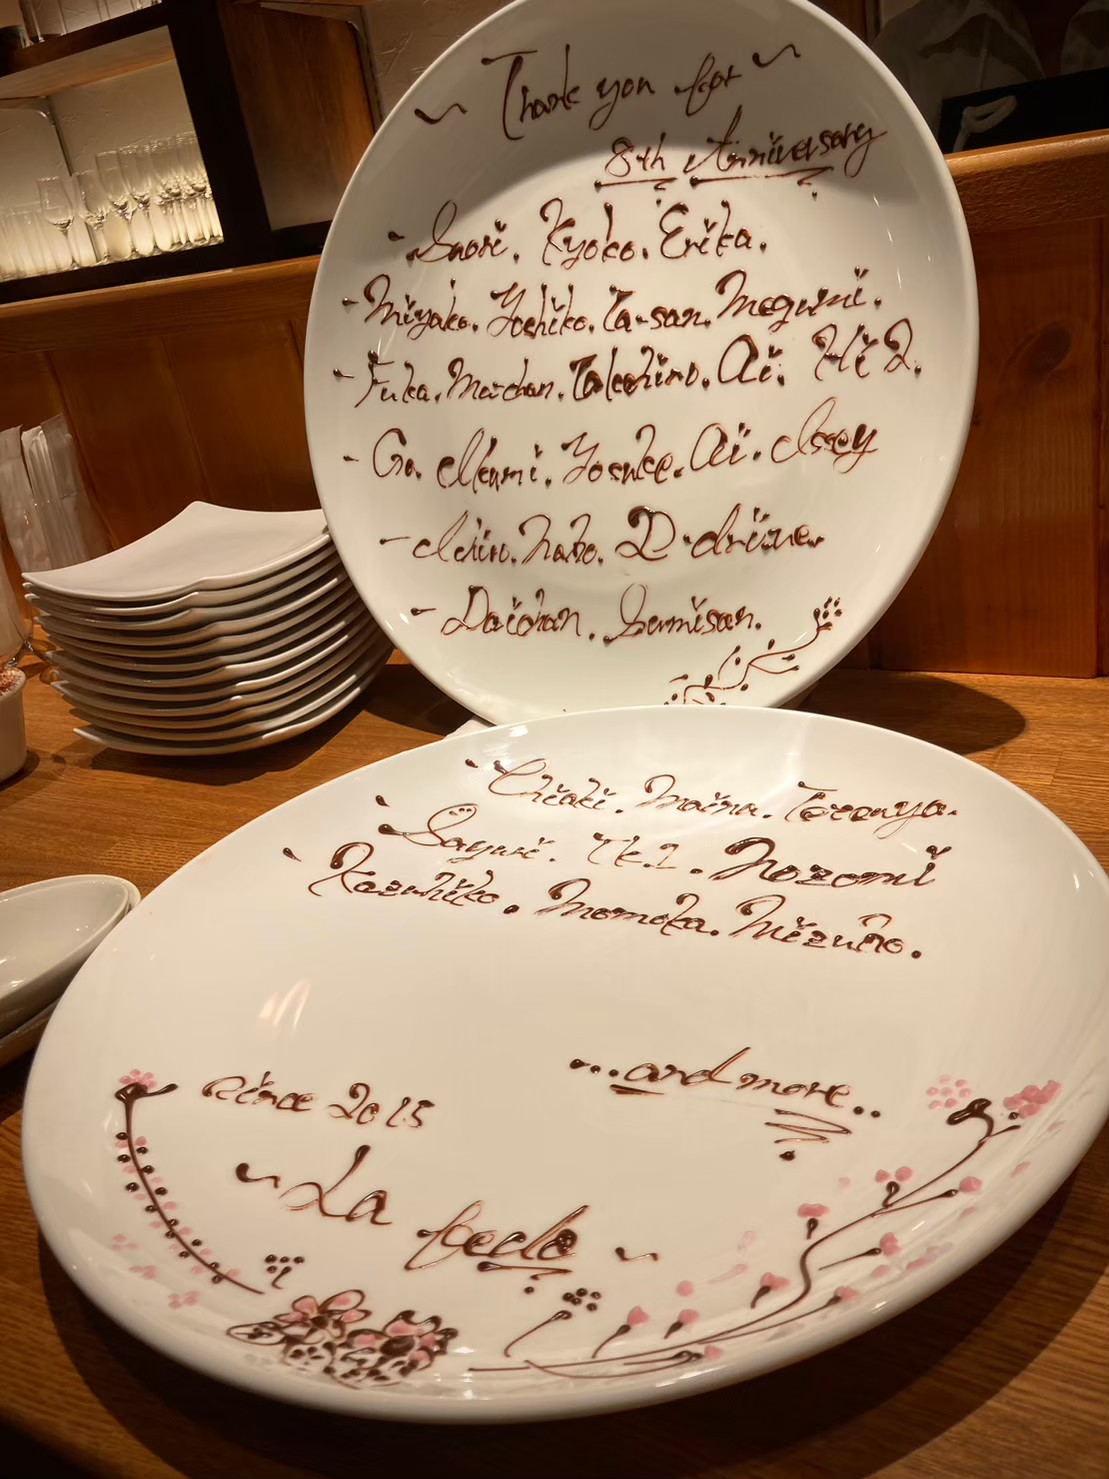 ~ Thank you for ~
8th Anniversary
- Saori. Kyoko. Erika.
- Miyako. Yoshiko. Ta-san. Megumi.
- Fuka. Mai-chan. Takahiro. Ai. Hi 2.
- Go. Akumi. Yosuke. Ai.
- Naho. D-drive.
- Daichan. Sumisan.
- Chiaki. Maina.
- Sayuri. Tk.2. Nozomi
- Kazuhiko. Momoka. Mizuho.
...and more..
Since 2015
~ La ~